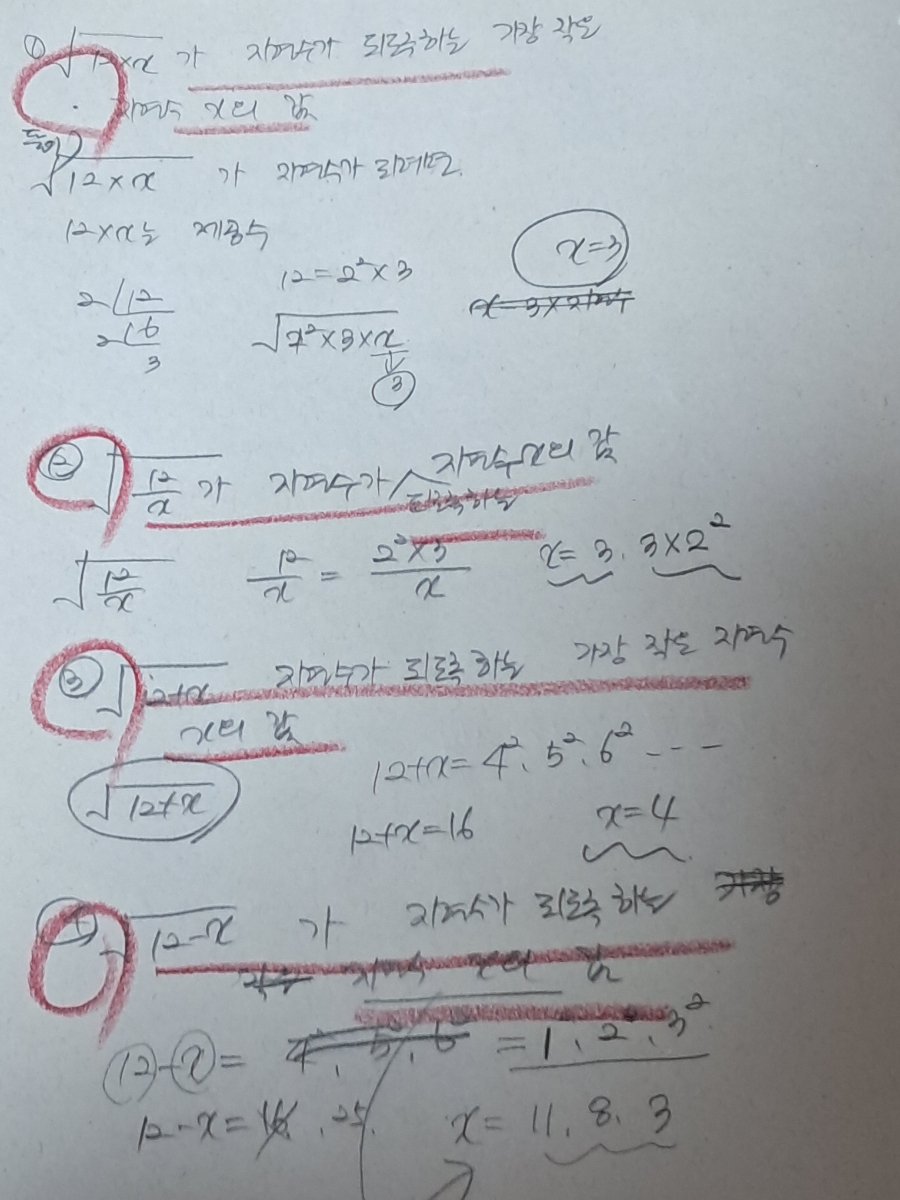 ① √12×x 가 자연수가 되도록하는 가장 작은
자연수 x의 값
풀이)
√12×x 가 자연수가 되려면.
12×x는 제곱수
2 12
2 6
3
12=2²×3
√2²×3×x
↓
3
x=3
② √12/x 가 자연수가 되도록하는 자연수 x의 값
√12/x 12/x = 2²×3/x x= 3, 3×2²
③ √12+x 자연수가 되도록 하는 가장 작은 자연수
x의 값
√12+x
12+x= 4², 5², 6² ---
12+x=16 x=4
√12-x 가 자연수가 되도록 하는
자연수 x의 값
12-x= 4², 5², 6² = 1, 2², 3²
12-x=16, 25, x= 11, 8, 3